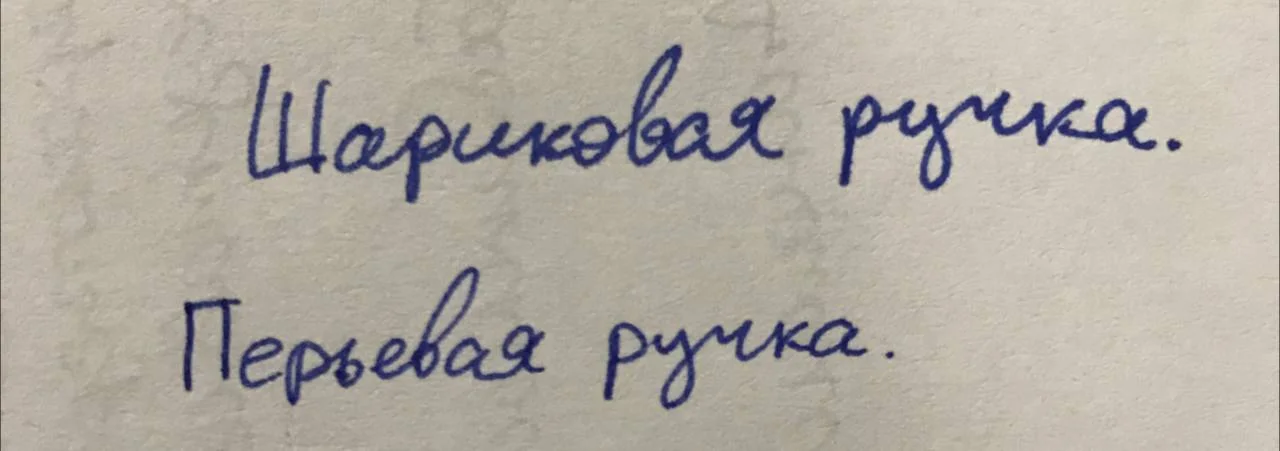 Шариковая ручка.
Перьевая ручка.